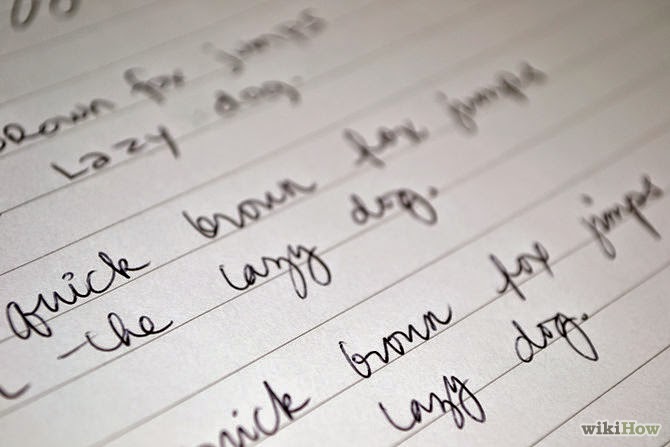 brown fox jumps
Lazy dog.
quick brown fox jumps
the lazy dog.
quick brown fox jumps
lazy dog.
wikiHow